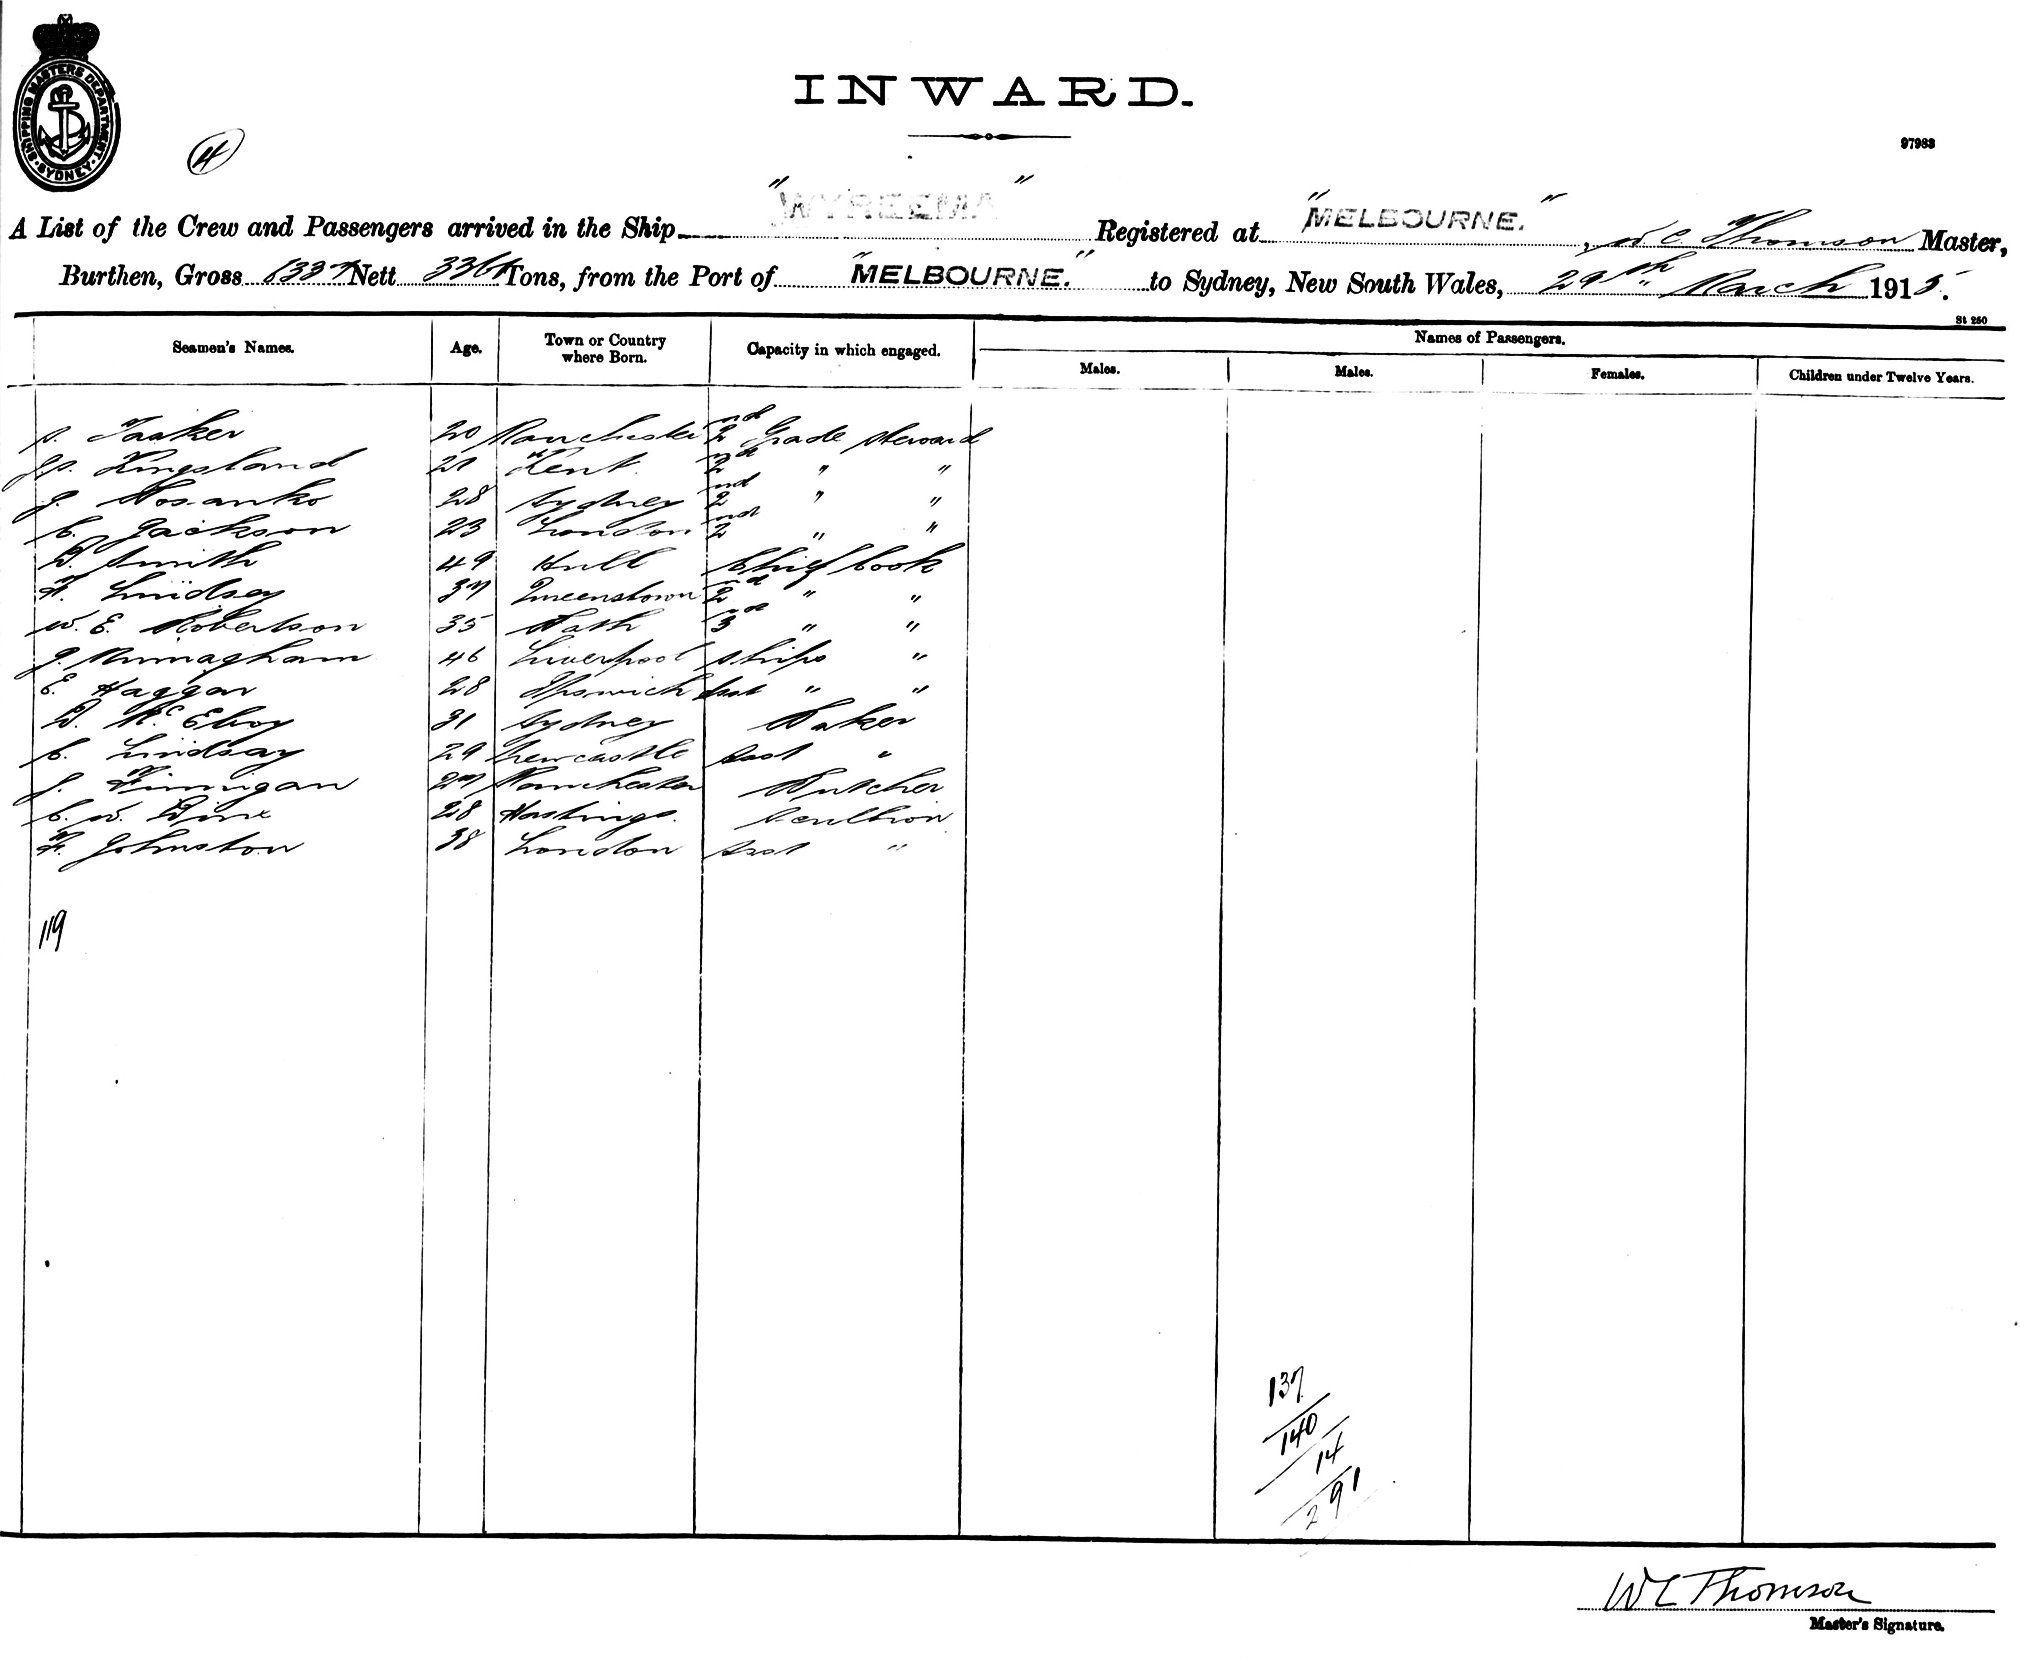 SHIPPING MASTERS DEPARTMENT. SYDNEY.
INWARD.
4
97983
A List of the Crew and Passengers arrived in the Ship "WYREEMA" Registered at "MELBOURNE.", W C Thomson Master,
Burthen, Gross 6337 Nett 3361 Tons, from the Port of "MELBOURNE." to Sydney, New South Wales, 29th March 1915.
St 250
Seamen's Names. Age. Town or Country where Born. Capacity in which engaged. Names of Passengers.
Males. Males. Females. Children under Twelve Years.
S. Tasker 20 Manchester 2nd Grade Steward
Kingsland 21 Kent 2nd " "
J. 28 Sydney 2nd " "
C. Jackson 23 London 2nd " "
D. Smith 49 Hull Chief Cook
F. Lindsay 37 Queenstown 2nd " "
W. E. Robertson 35 Bath 3rd " "
J. 46 Liverpool Ships "
E. Haggar 28 Ipswich Asst " "
D. McElroy 31 Sydney Baker
C. Lindsay 29 Newcastle Asst "
J. Finnigan 27 Manchester Butcher
C. W. Dine 28 Hastings. Scullion
F. Johnston 38 London Asst "
119
137
140
14
291
W C Thomson
Master's Signature.